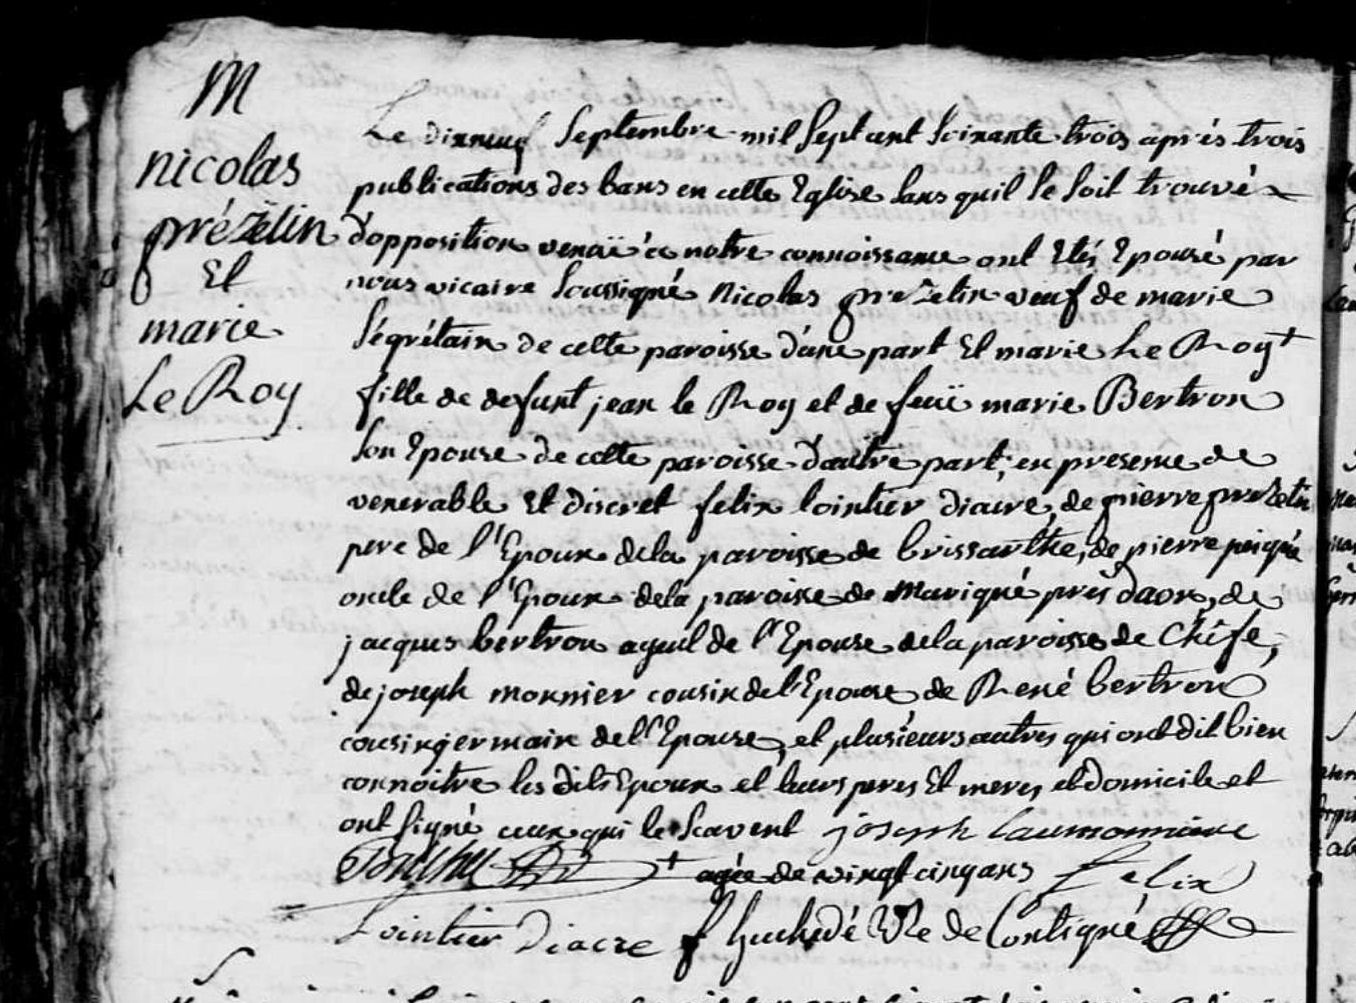 M
nicolas
prézelin
Et
marie
Le Roy
Le dixneuf Septembre mil Sept cent Soixante trois aprés trois
publications des bans en cette Eglise Sans quil Se soit trouvé
d'opposition venuë a notre connoissance ont Etés Epousé par
nous vicaire Soussigné Nicolas prezelin veuf de marie
Ségrétain de cette paroisse d'une part Et marie Le Roy +
fille de defunt jean le Roy et de feuë marie Bertron
Son Epouse de cette paroisse d'autre part, en presence de
venerable Et discret felix lointier diacre, de pierre prezelin
pere de l'Epoux de la paroisse de brissarthe, de pierre
oncle de l'Epoux de la paroisse de Marigné prés daon, de
jacques bertron ayeul de l'Epouse de la paroisse de
de joseph monnier cousin de l'Epouse de René bertron
cousin germain de l'Epouse, et plusieurs autres qui ont dit bien
connoitre les dits Epoux et leurs peres Et meres et domicile et
ont signé ceux qui le Scavent joseph
+ agée de vingt cinq ans Felix
Lointier Diacre f huchedé Vic de Contigné